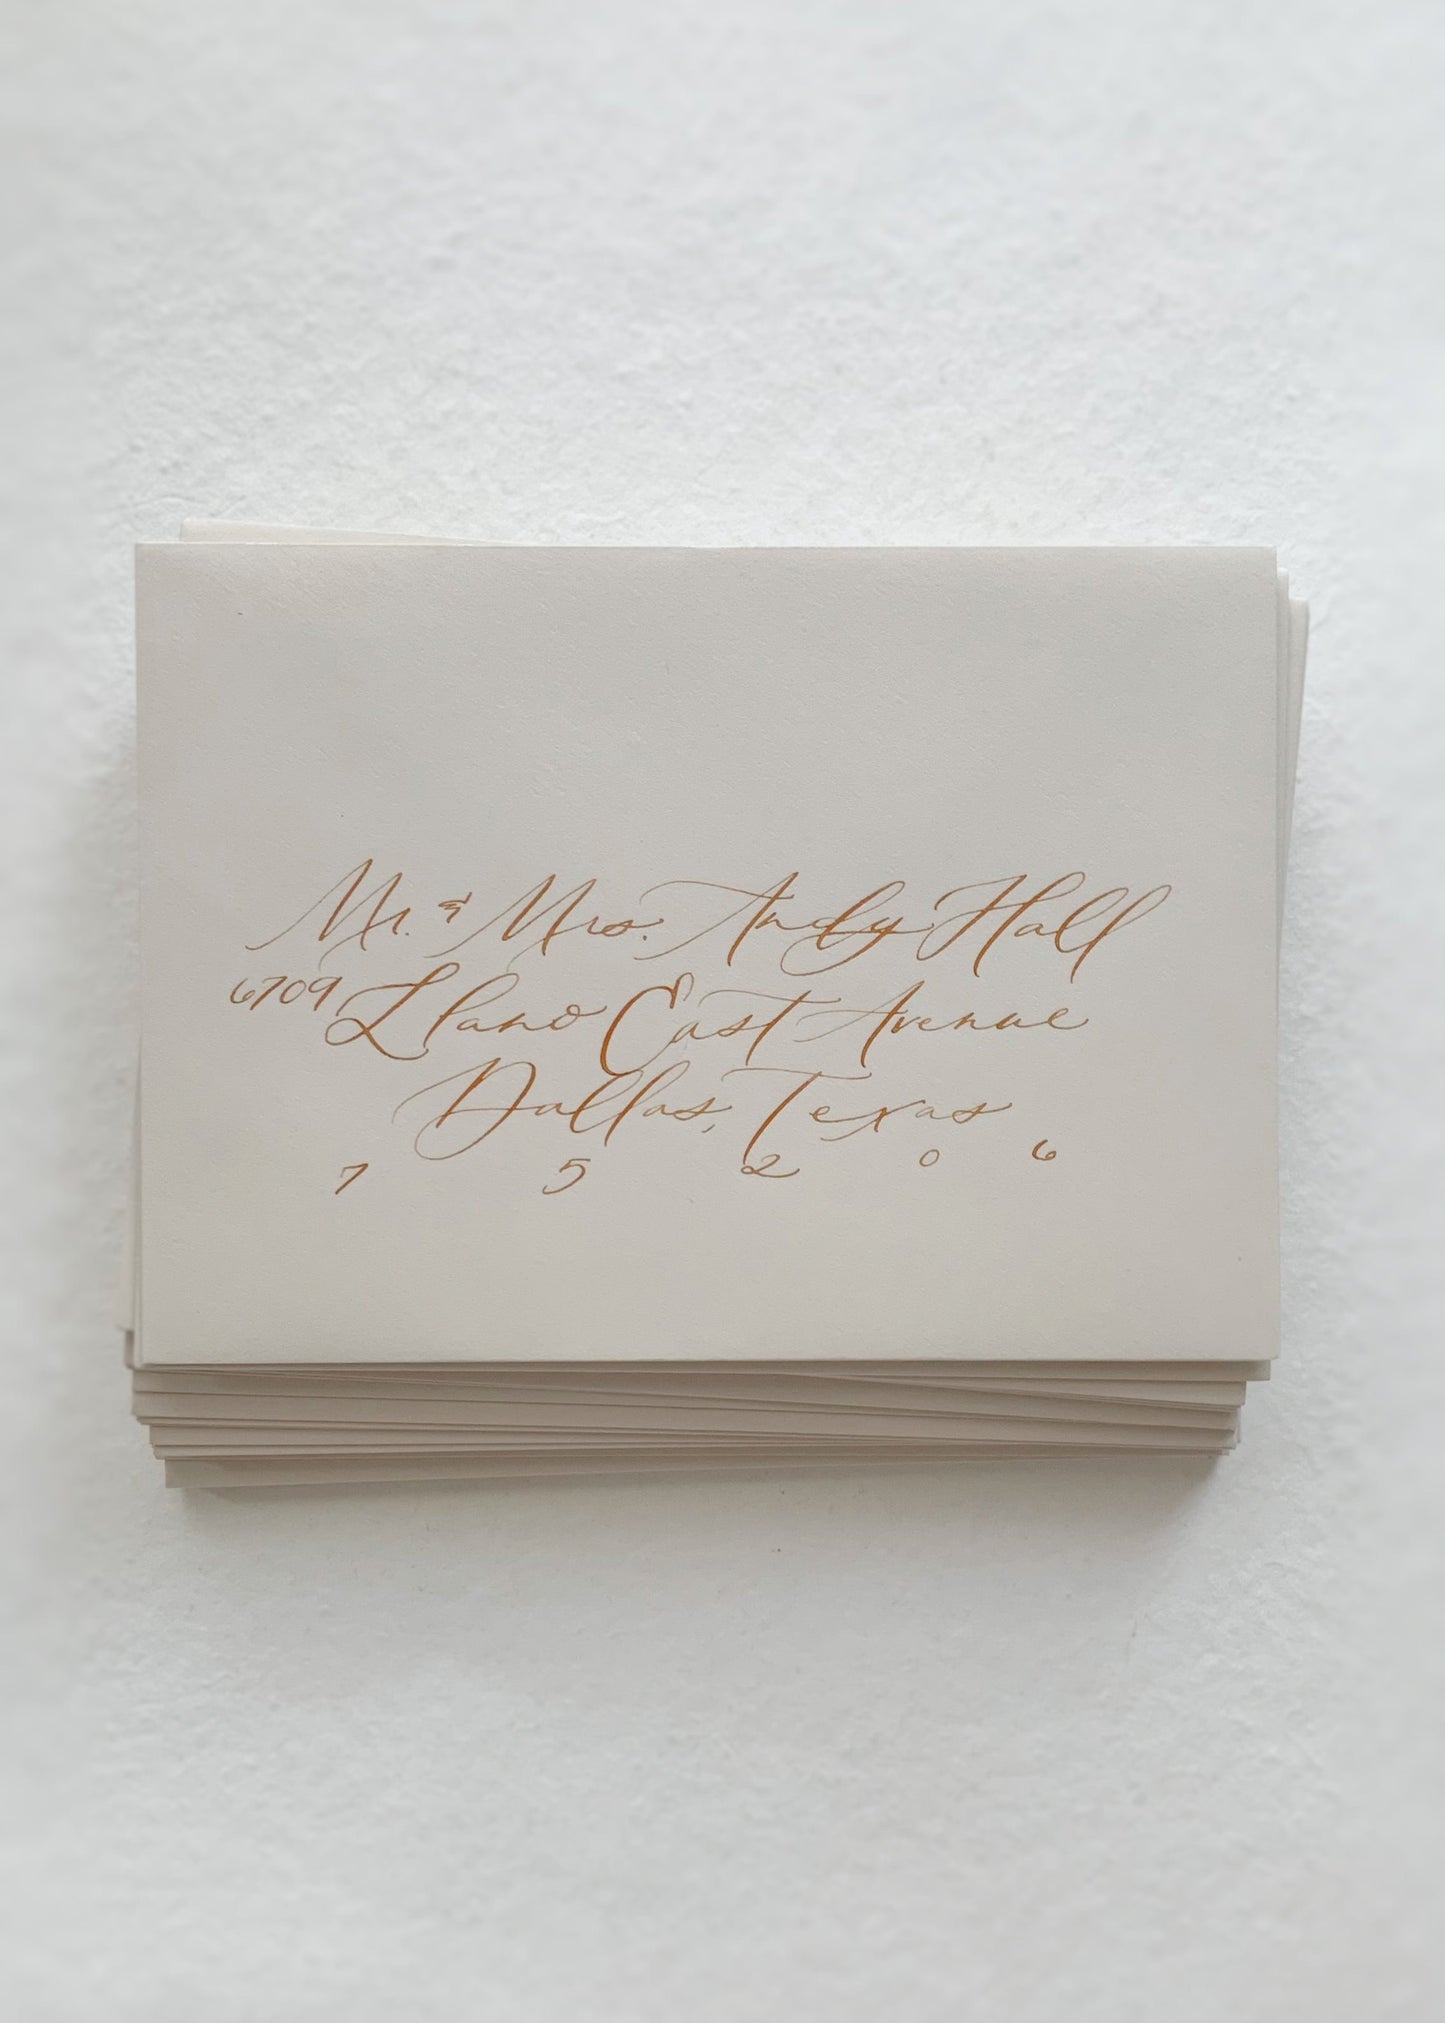 Mr. & Mrs. Andy Hall
6709 Llano East Avenue
Dallas, Texas
7 5 2 0 6